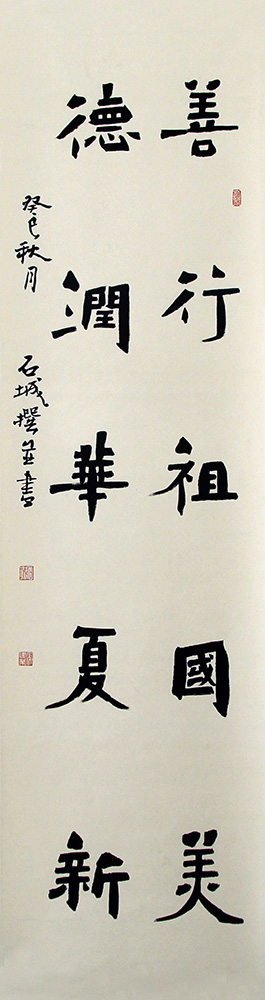 善行祖國美
德潤華夏新
癸巳秋月
石城撰並書